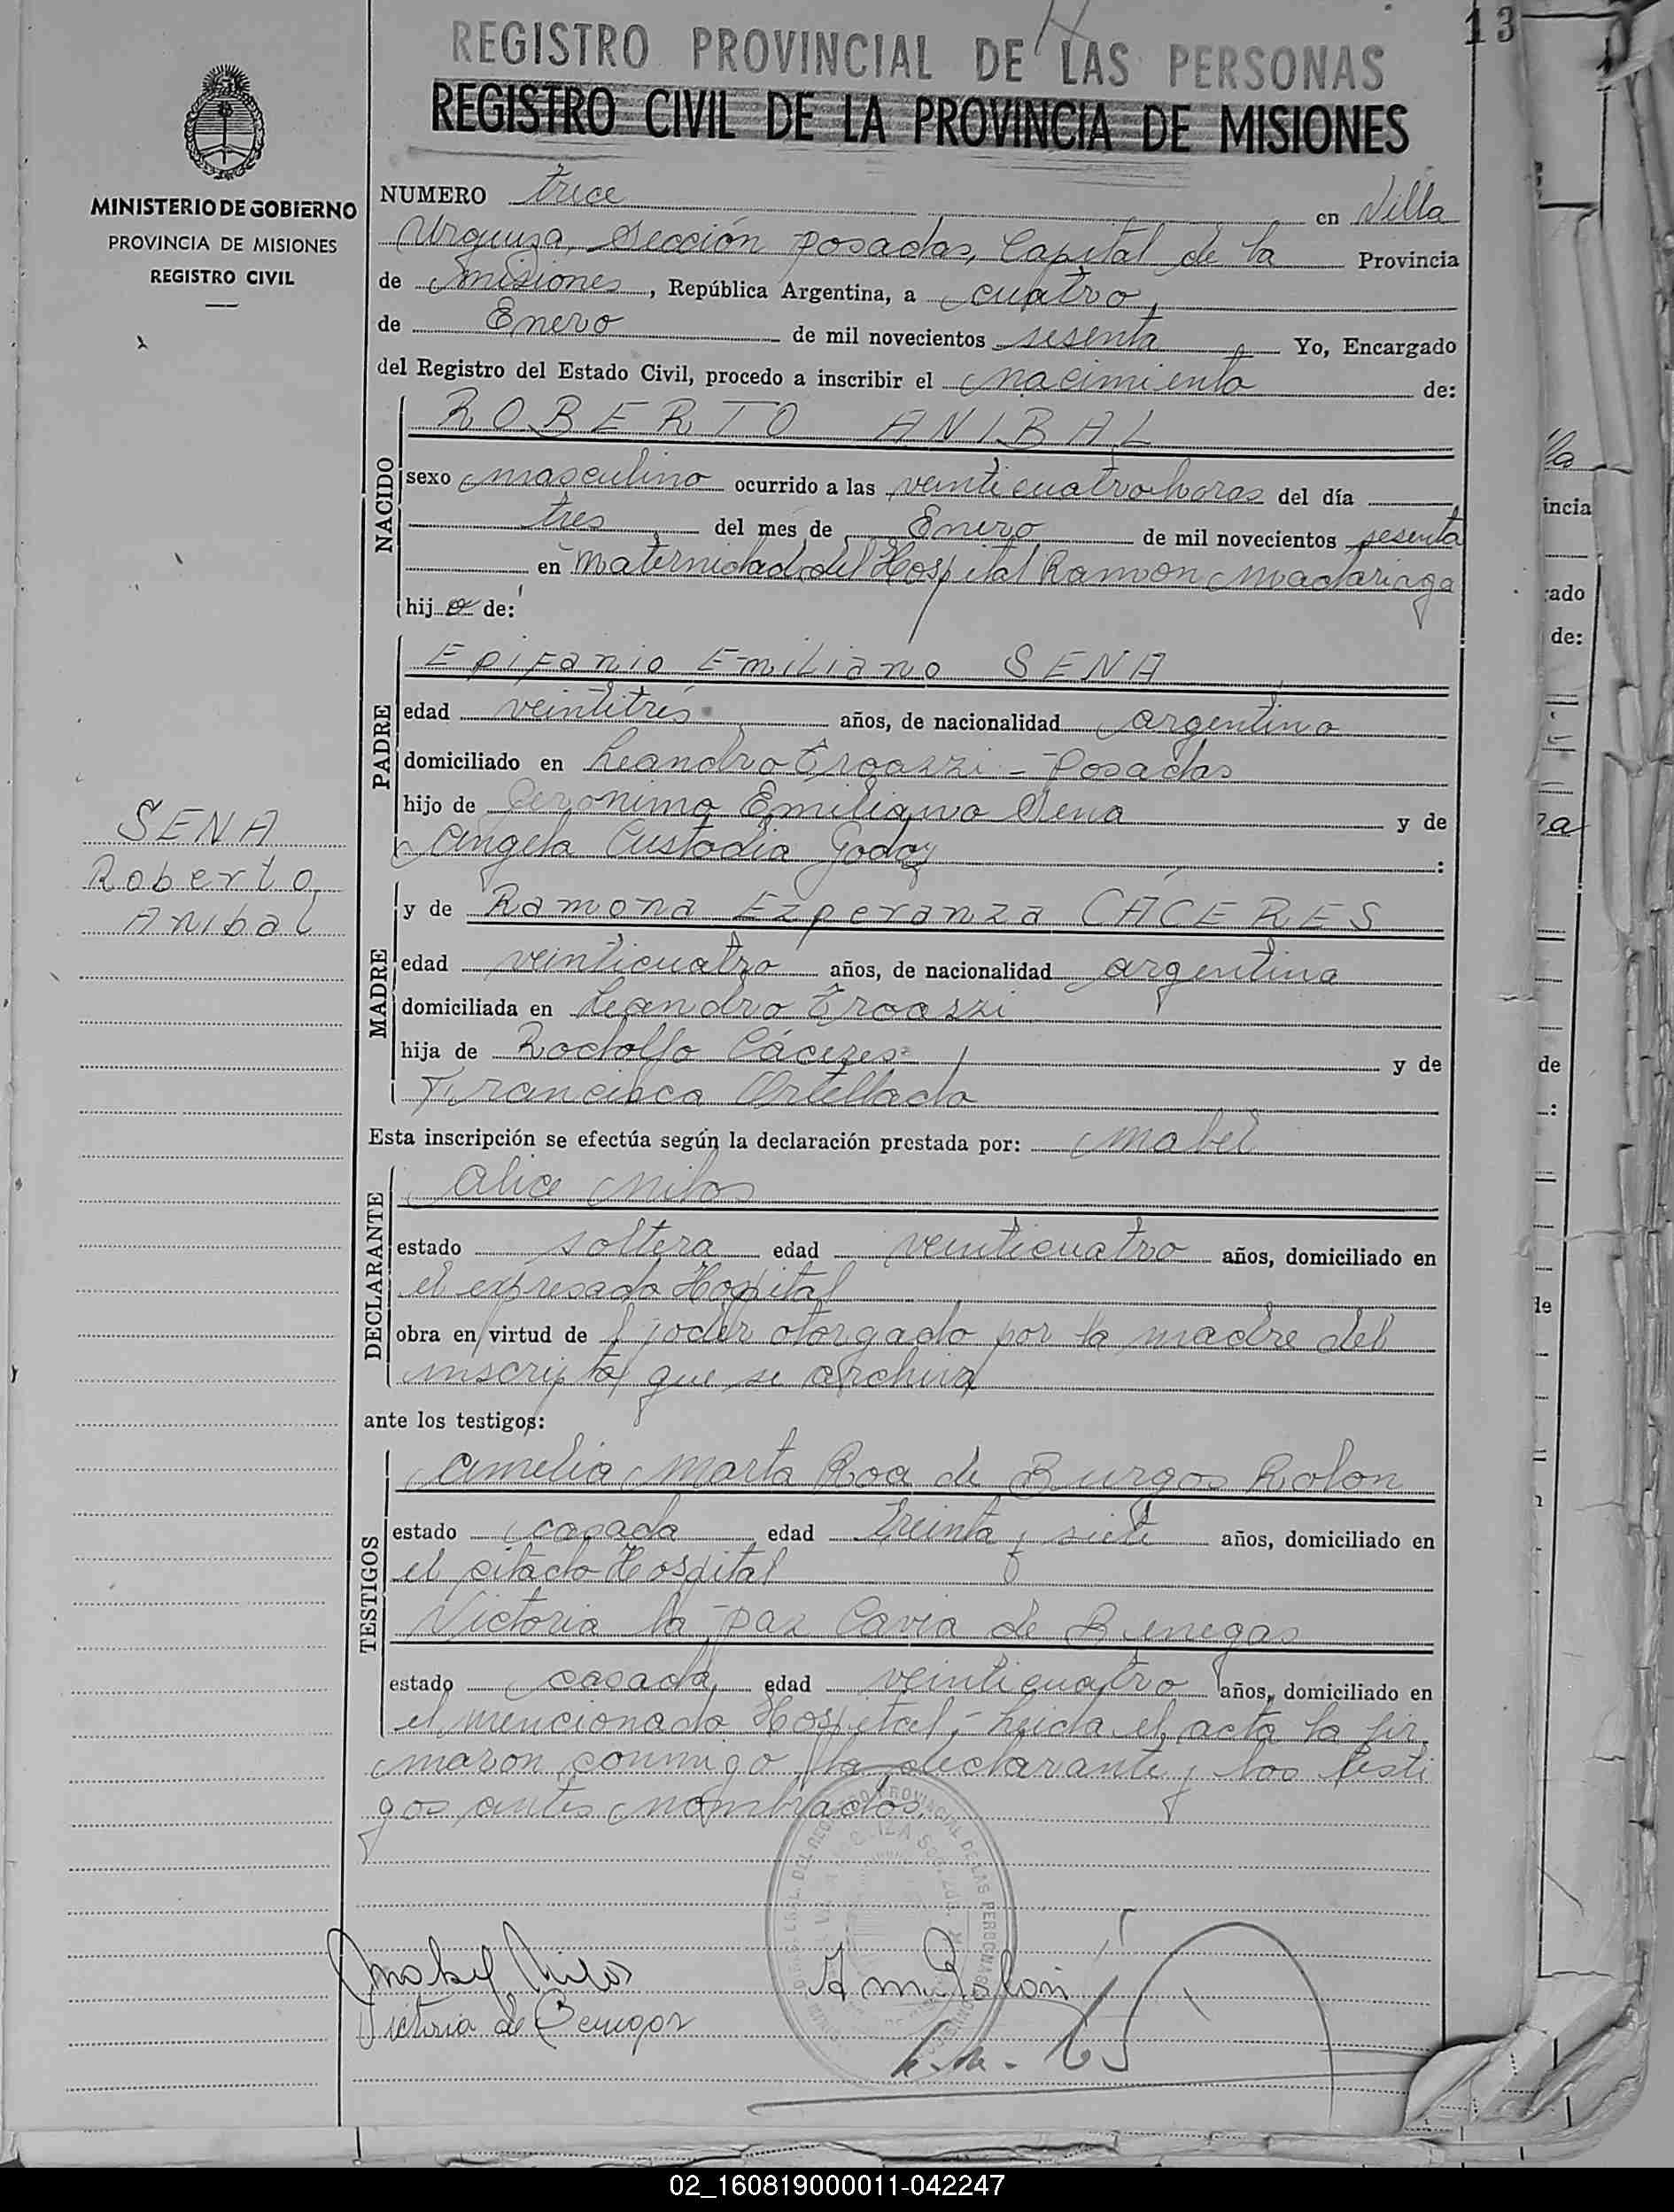 13
REGISTRO PROVINCIAL DE LAS PERSONAS
REGISTRO CIVIL DE LA PROVINCIA DE MISIONES
MINISTERIO DE GOBIERNO
PROVINCIA DE MISIONES
REGISTRO CIVIL
NUMERO trece en Villa
Urquiza, Sección Posadas, Capital de la Provincia
de Misiones, República Argentina, a cuatro
de Enero de mil novecientos sesenta Yo, Encargado
del Registro del Estado Civil, procedo a inscribir el nacimiento de:
NACIDO
ROBERTO ANIBAL
sexo masculino ocurrido a las veinticuatro horas del día
tres del mes de Enero de mil novecientos sesenta
en Maternidad del Hospital Ramon Madariaga
hijo de:
PADRE
Epifanio Emiliano SENA
edad veintitrés años, de nacionalidad argentino
domiciliado en Leandro - Posadas
hijo de Geronimo Emiliano Sena y de
Angela Custodia Godoy :
SENA
Roberto
Anibal
MADRE
y de Ramona Ezperanza CÁCERES
edad veinticuatro años, de nacionalidad argentina
domiciliada en Leandro
hija de Rodolfo Cáceres y de
Francisca Ortellado
Esta inscripción se efectúa según la declaración prestada por: Mabel
DECLARANTE
Alice Milos
estado soltera edad veinticuatro años, domiciliado en
el expresado Hospital
obra en virtud de poder otorgado por la madre del
inscripto que se archiva
ante los testigos:
TESTIGOS
Amelia Marta Roa de Burgos Rolon
estado casada edad treinta y siete años, domiciliado en
el citado Hospital
Victoria la Paz Cavia de Benegas
estado casada edad veinticuatro años, domiciliado en
el mencionado Hospital,- Leida el acta la fir
maron conmigo la declarante y los testi
gos antes nombrados.
Mabel Milos
A M Rolon
Victoria de Benegas
02_160819000011-042247